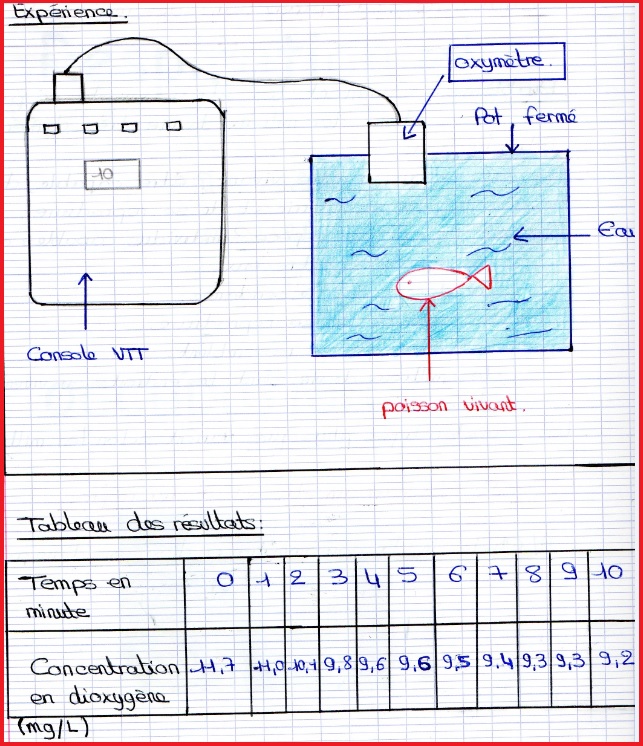 Expérience.
oxymètre.
Pot fermé
10
Eau
Console VTT
poisson vivant.
Tableau des résultats:
Temps en minute 0 1 2 3 4 5 6 7 8 9 10
Concentration en dioxygène (mg/L) 11,7 11,0 10,1 9,8 9,6 9,6 9,5 9,4 9,3 9,3 9,2